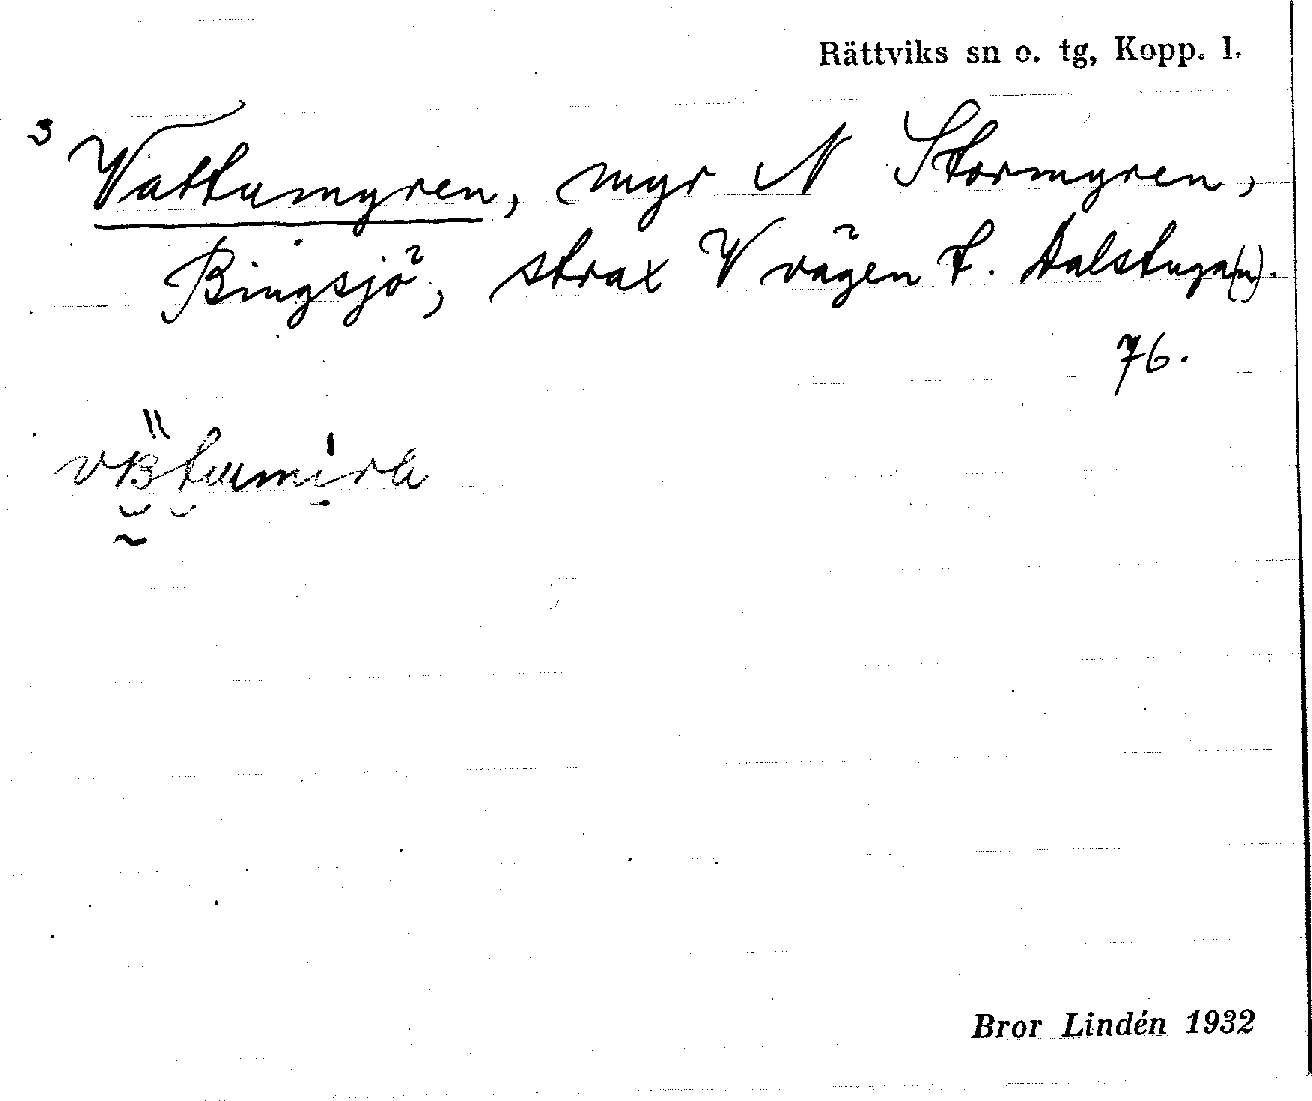 Rättviks sn o. tg, Kopp. l.
3 Vattumyren, myr N Stormyren,
Bingsjö, strax V vägen t. Dalstuga(n).
76.
Bror Lindén 1932